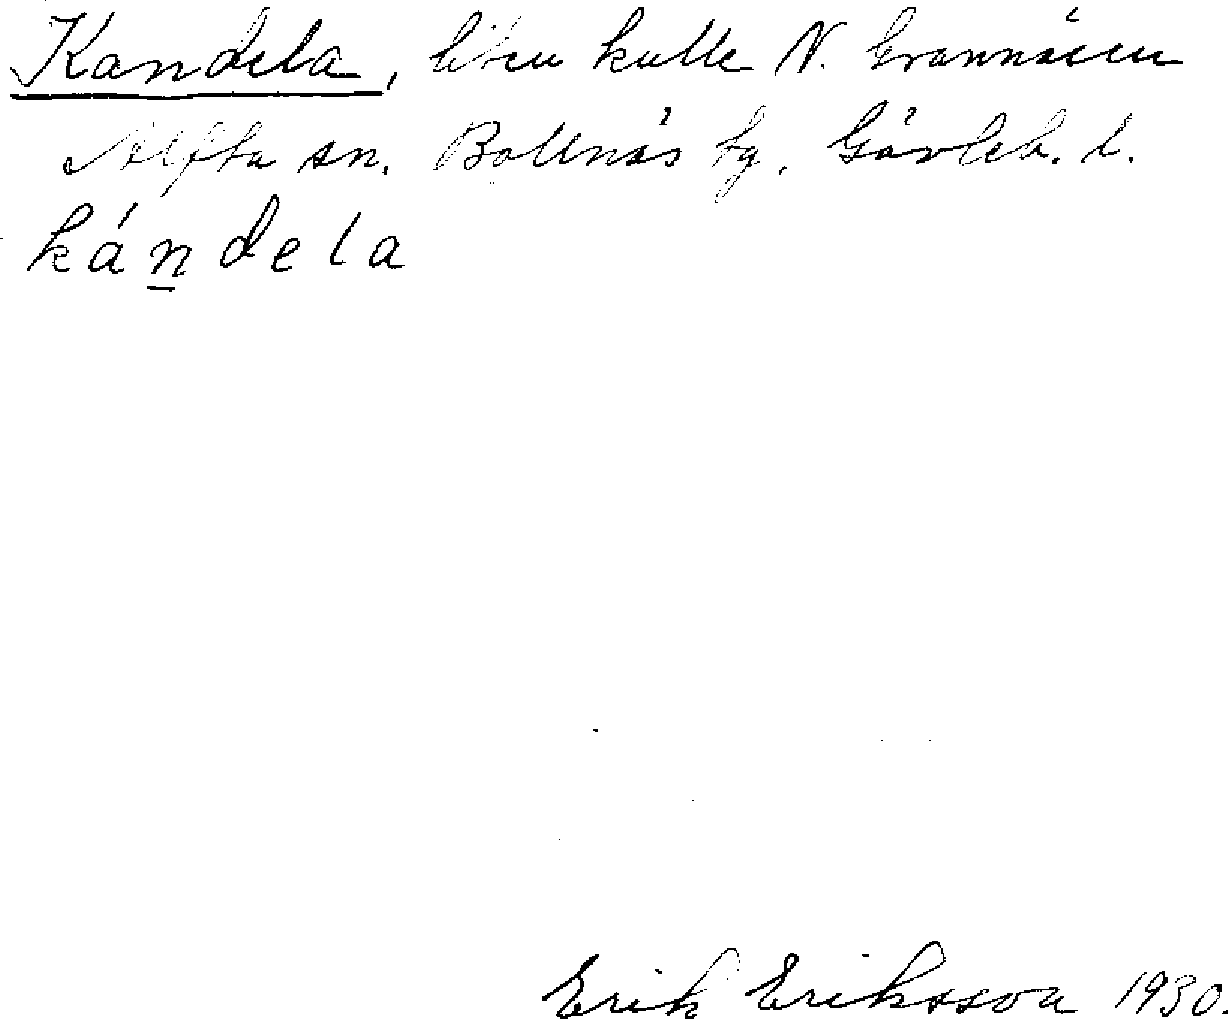 Kandela, liten kulle N. Grannäsen
Alfta sn. Bollnäs tg. Gävleb. l.
kándela
Erik Eriksson 1930.